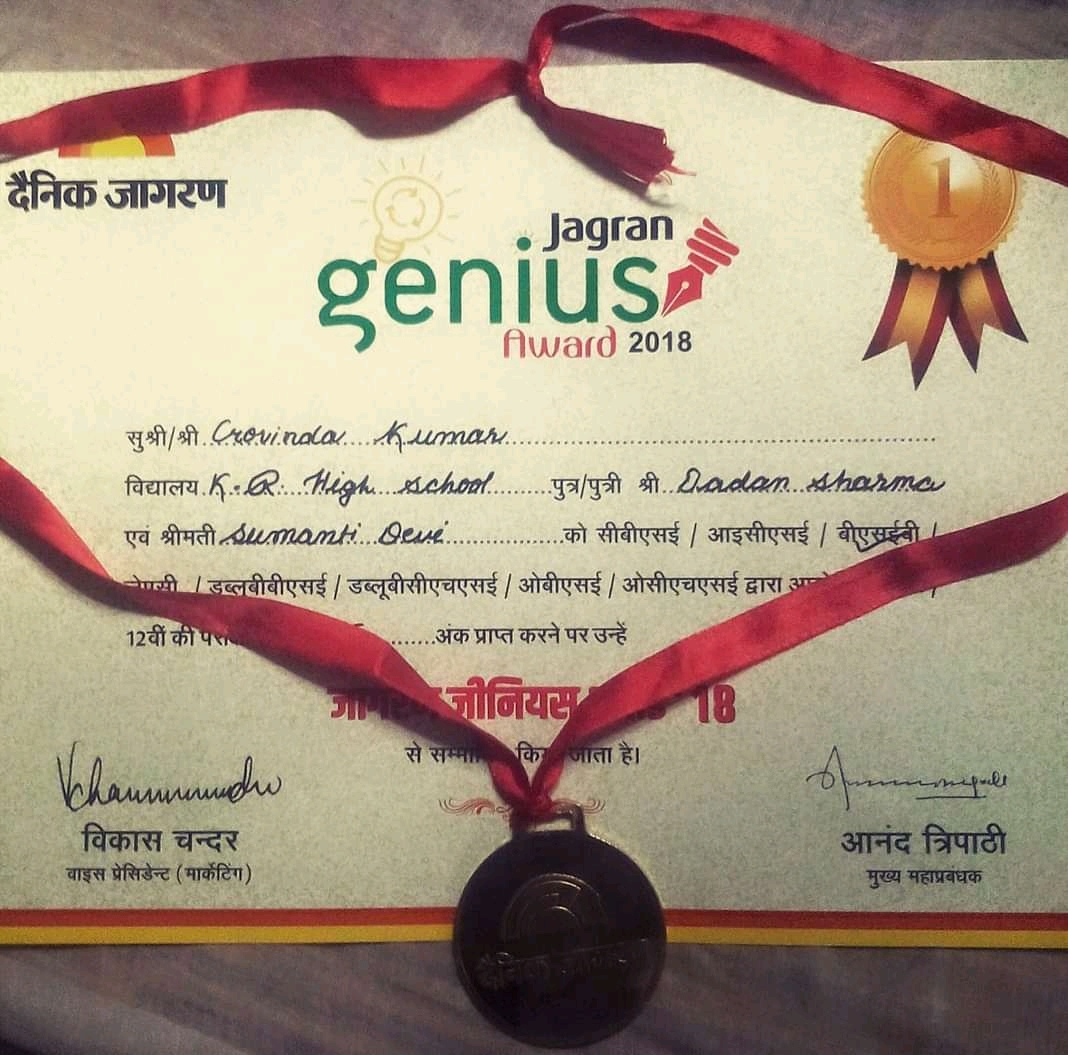 दैनिक जागरण
1
Jagran
genius
Award 2018
सुश्री/श्री Govinda Kumar
विद्यालय K.R. High School पुत्र/पुत्री श्री Dadan Sharma
एवं श्रीमती Sumanti Devi को सीबीएसई / आइसीएसई / बीएसईबी /
/ डब्लूबीबीएसई / डब्लूबीसीएचएसई / ओबीएसई / ओसीएचएसई द्वारा
12वीं की अंक प्राप्त करने पर उन्हें
जीनियस 18
से जाता है।
विकास चन्दर
वाइस प्रेसिडेन्ट (मार्केटिंग)
आनंद त्रिपाठी
मुख्य महाप्रबंधक
दैनिक जागरण